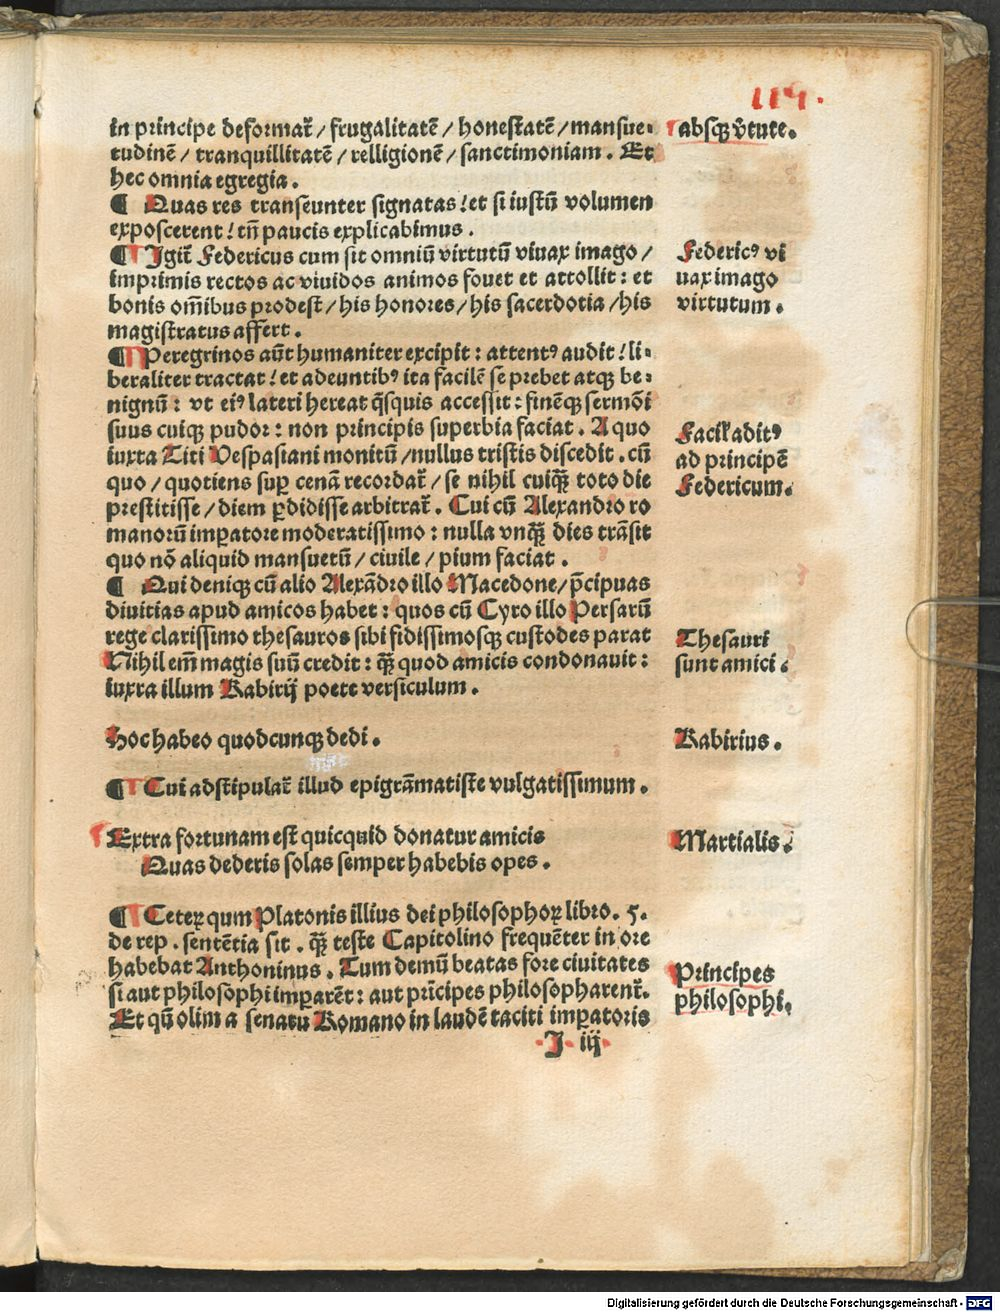 114.
in principe deformar̃ / frugalitatē / honestatē / mansue-
tudinē / tranquillitatē / relligionē / sanctimoniam . Et
hec omnia egregia .
absqꝫ v̄tute.
¶ Quas res transeunter signatas / et si iustū volumen
exposcerent / tñ paucis explicabimus .
¶ Igit̃ Federicus cum sit omniū virtutū viuax imago /
imprimis rectos ac viuidos animos fouet et attollit : et
bonis om̄ibus prodest / his honores / his sacerdotia / his
magistratus affert .
Federicꝰ vi
uax imago
virtutum .
¶ Peregrinos aūt humaniter excipit : attentꝰ audit / li-
beraliter tractat / et adeuntibꝰ ita facilē se prebet atqꝫ be-
nignū : vt eiꝰ lateri hereat q̄squis accessit : finēqꝫ sermōi
suus cuiqꝫ pudor : non principis superbia faciat . A quo
iuxta Titi Vespasiani monitū / nullus tristis discedit . cū
quo / quotiens suꝑ cenā recordat̃ / se nihil cuiqꝫ̄ toto die
prestitisse / diem ꝑdidisse arbitrat̃ . Cui cū Alexandro ro
manorū imꝑatore moderatissimo : nulla vnqꝫ̄ dies trāsit
quo nō aliquid mansuetū / ciuile / pium faciat .
Facil' aditꝰ
ad principē
Federicum.
¶ Qui deniqꝫ cū alio Alexādro illo Macedone / p̄cipuas
diuitias apud amicos habet : quos cū Cyro illo Persarū
rege clarissimo thesauros sibi fidissimosqꝫ custodes parat
Nihil em̄ magis suū credit : qꝫ̄ quod amicis condonauit :
iuxta illum Rabirij poete versiculum .
Thesauri
sunt amici .
Hoc habeo quodcunqꝫ dedi .
Rabirius .
¶ Cui adstipulat̃ illud epigrāmatiste vulgatissimum .
Extra fortunam est quicquid donatur amicis
Quas dederis solas semper habebis opes .
Martialis .
¶ Ceteꝝ qum Platonis illius dei philosophoꝝ libro . 5.
de rep . sentētia sit . qꝫ̄ teste Capitolino frequēter in ore
habebat Anthoninus . Tum demū beatas fore ciuitates
si aut philosophi imꝑarēt : aut prīcipes philosopharent̃.
Et qū olim a senatu Romano in laudē taciti imꝑatoris
Principes
philosophi.
J iij
Digitalisierung gefördert durch die Deutsche Forschungsgemeinschaft - DFG